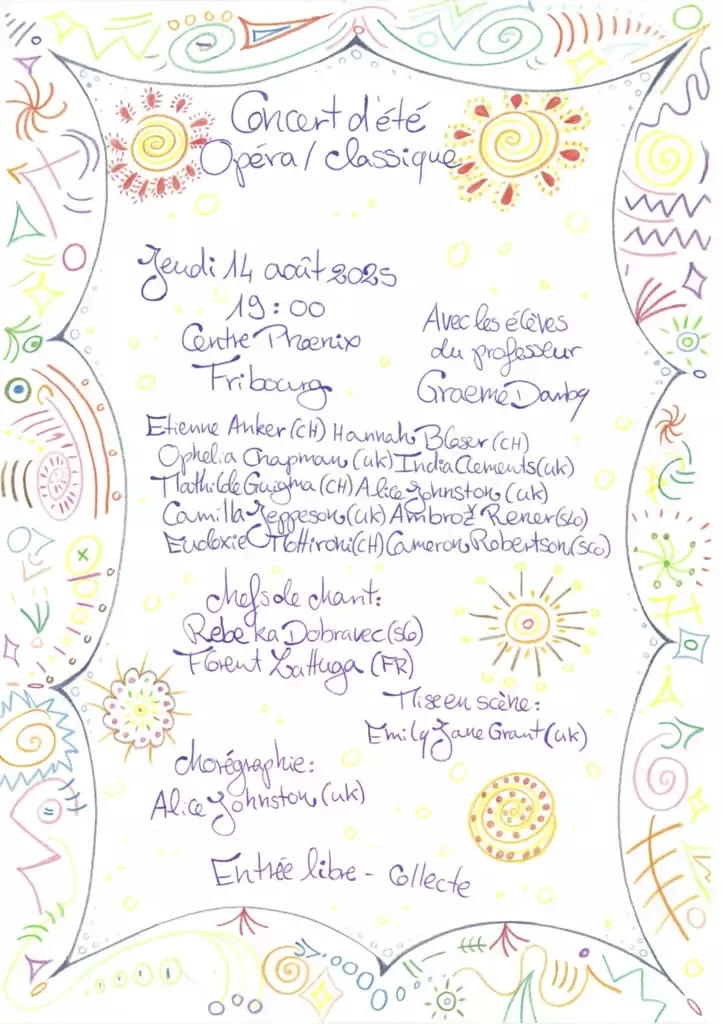 Concert d'été
Opéra / classique
Jeudi 14 août 2025
19:00
Centre Phœnix
Fribourg
Avec les élèves
du professeur
Graeme Danby
Etienne Anker (CH) Hannah Blaser (CH)
Ophelia Chapman (UK) India Clements (UK)
Mathilde Guigma (CH) Alice Johnston (UK)
Camilla Jeppeson (UK) Ambrož Rener (SLO)
Eudoxie Mottironi (CH) Cameron Robertson (SCO)
Chefs de chant:
Rebeka Dobravec (SG)
Florent Lattuga (FR)
Mise en scène:
Emily Jane Grant (UK)
Chorégraphie:
Alice Johnston (UK)
Entrée libre - Collecte